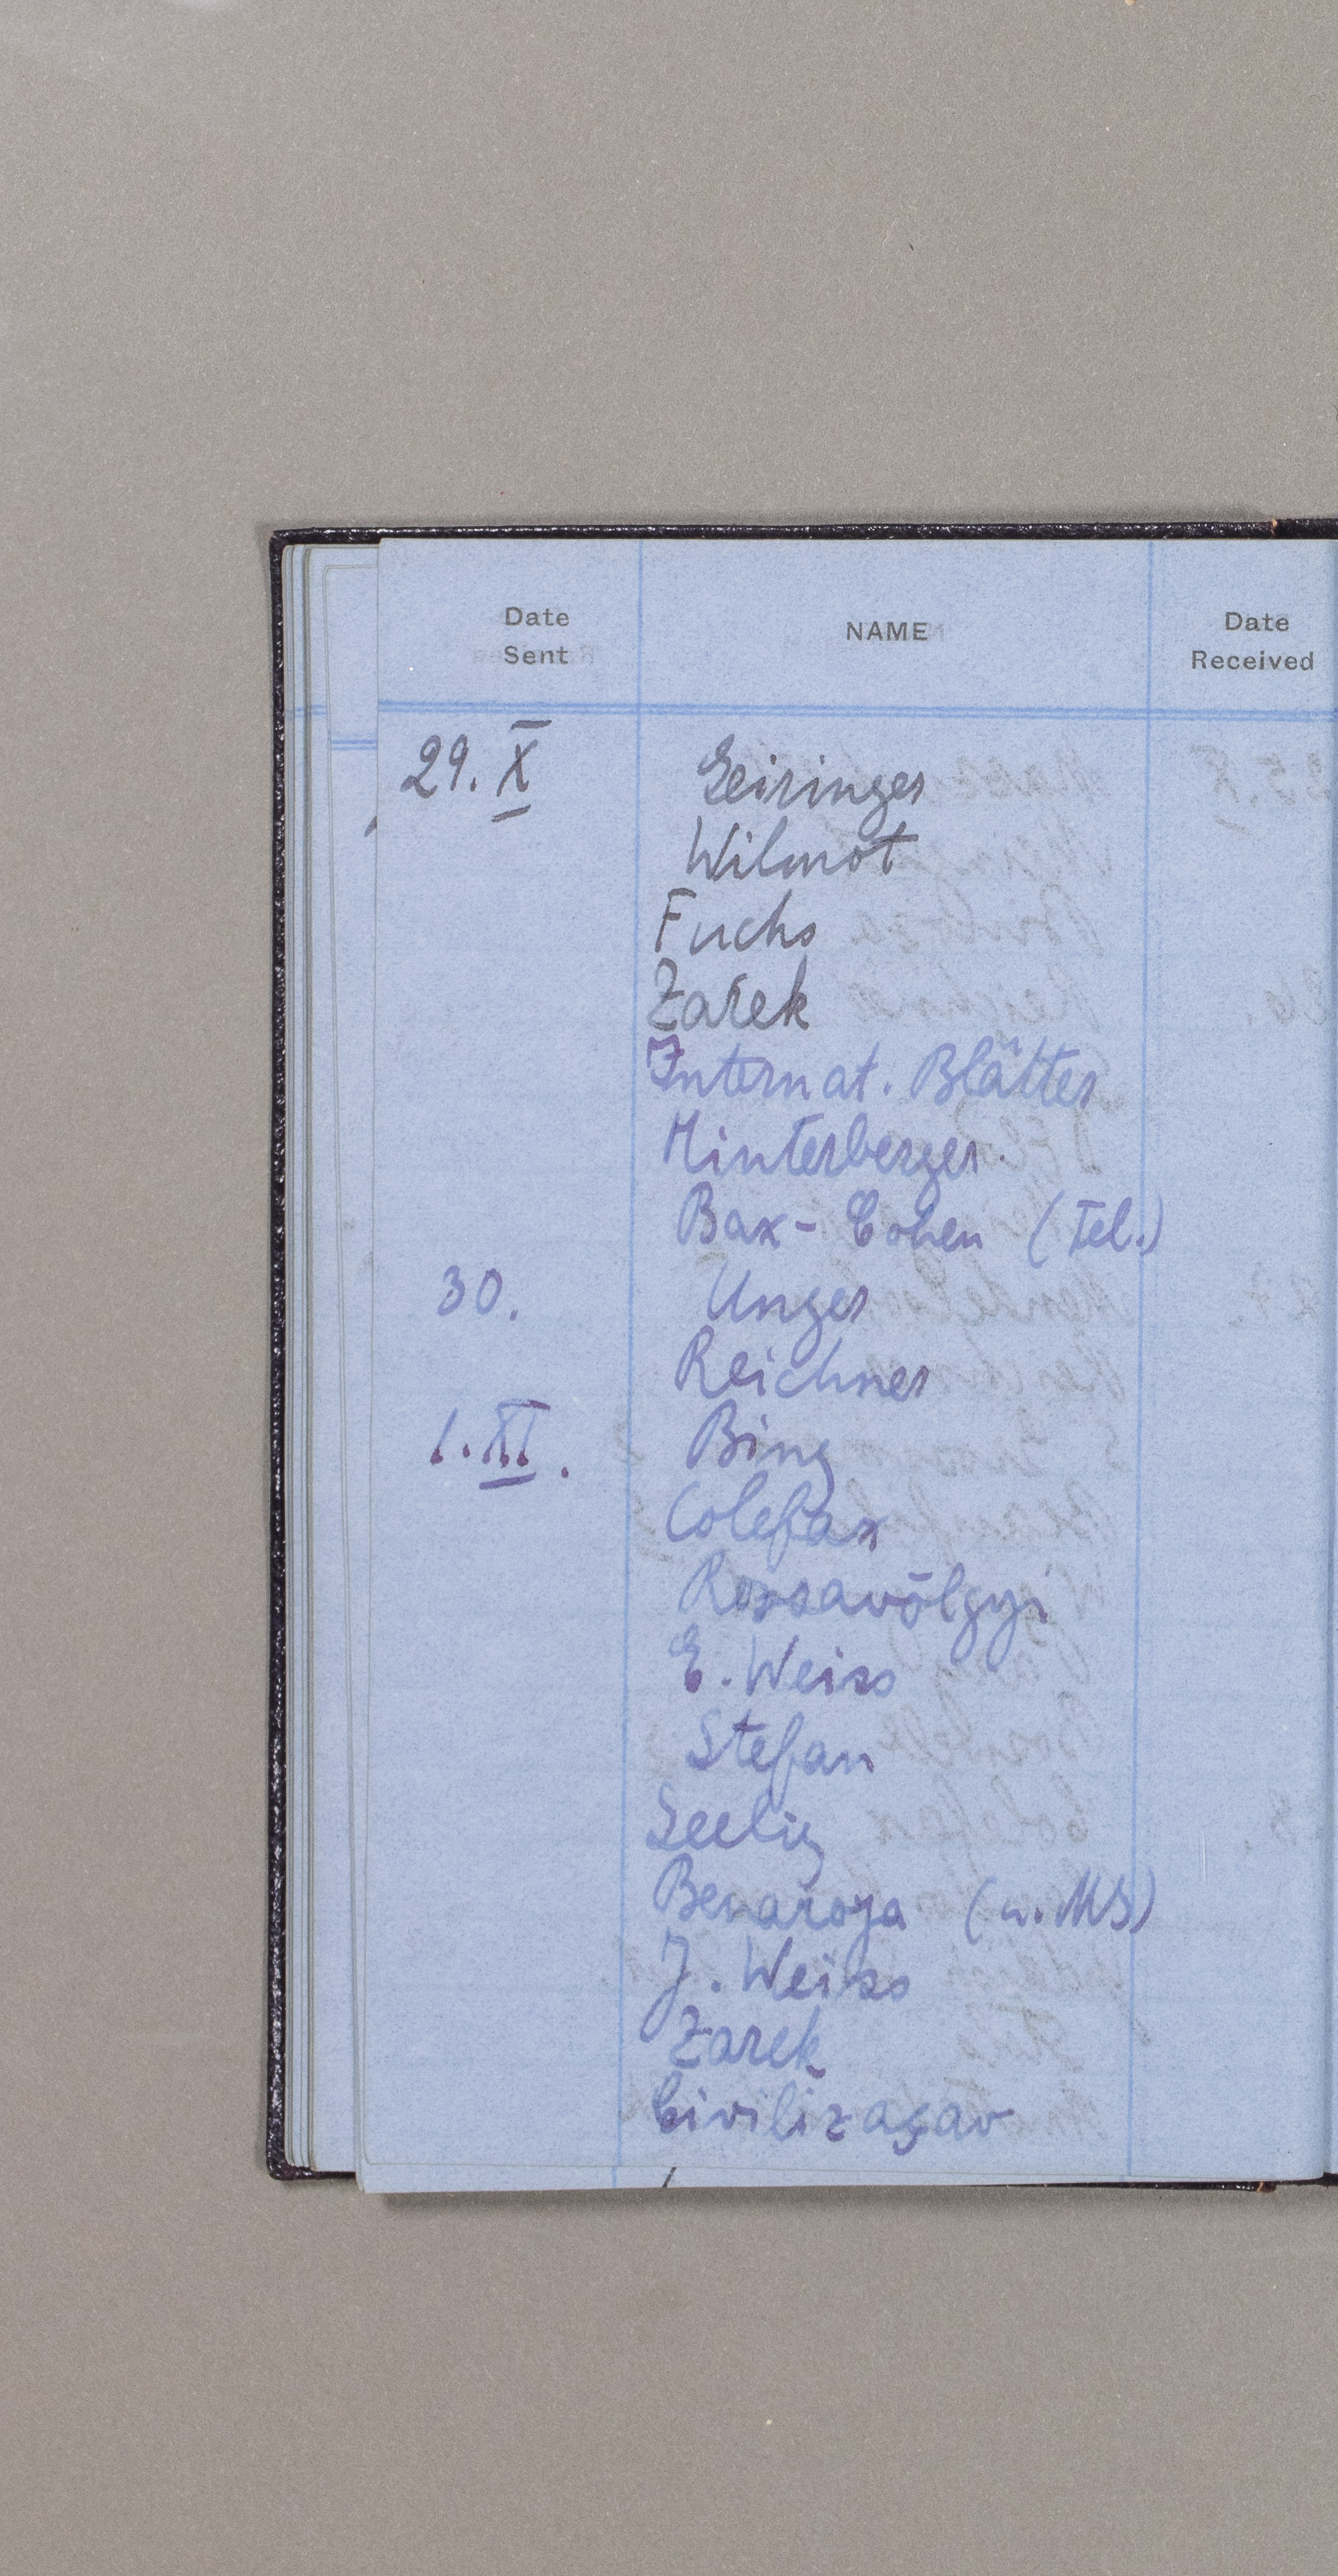 Date Sent NAME Date Received
29. X Geiringer
Wilmot
Fuchs
Zarek
Internat. Blätter
Hinterberger.
Bax-Cohen (Tel.)
30. Unger
Reichner
1. XI. Bing
Colefax
Rossavölgyi
E. Weiss
Stefan
Seelig
Benaroya (u. MS)
J. Weiss
Zarek
Civilizaçao